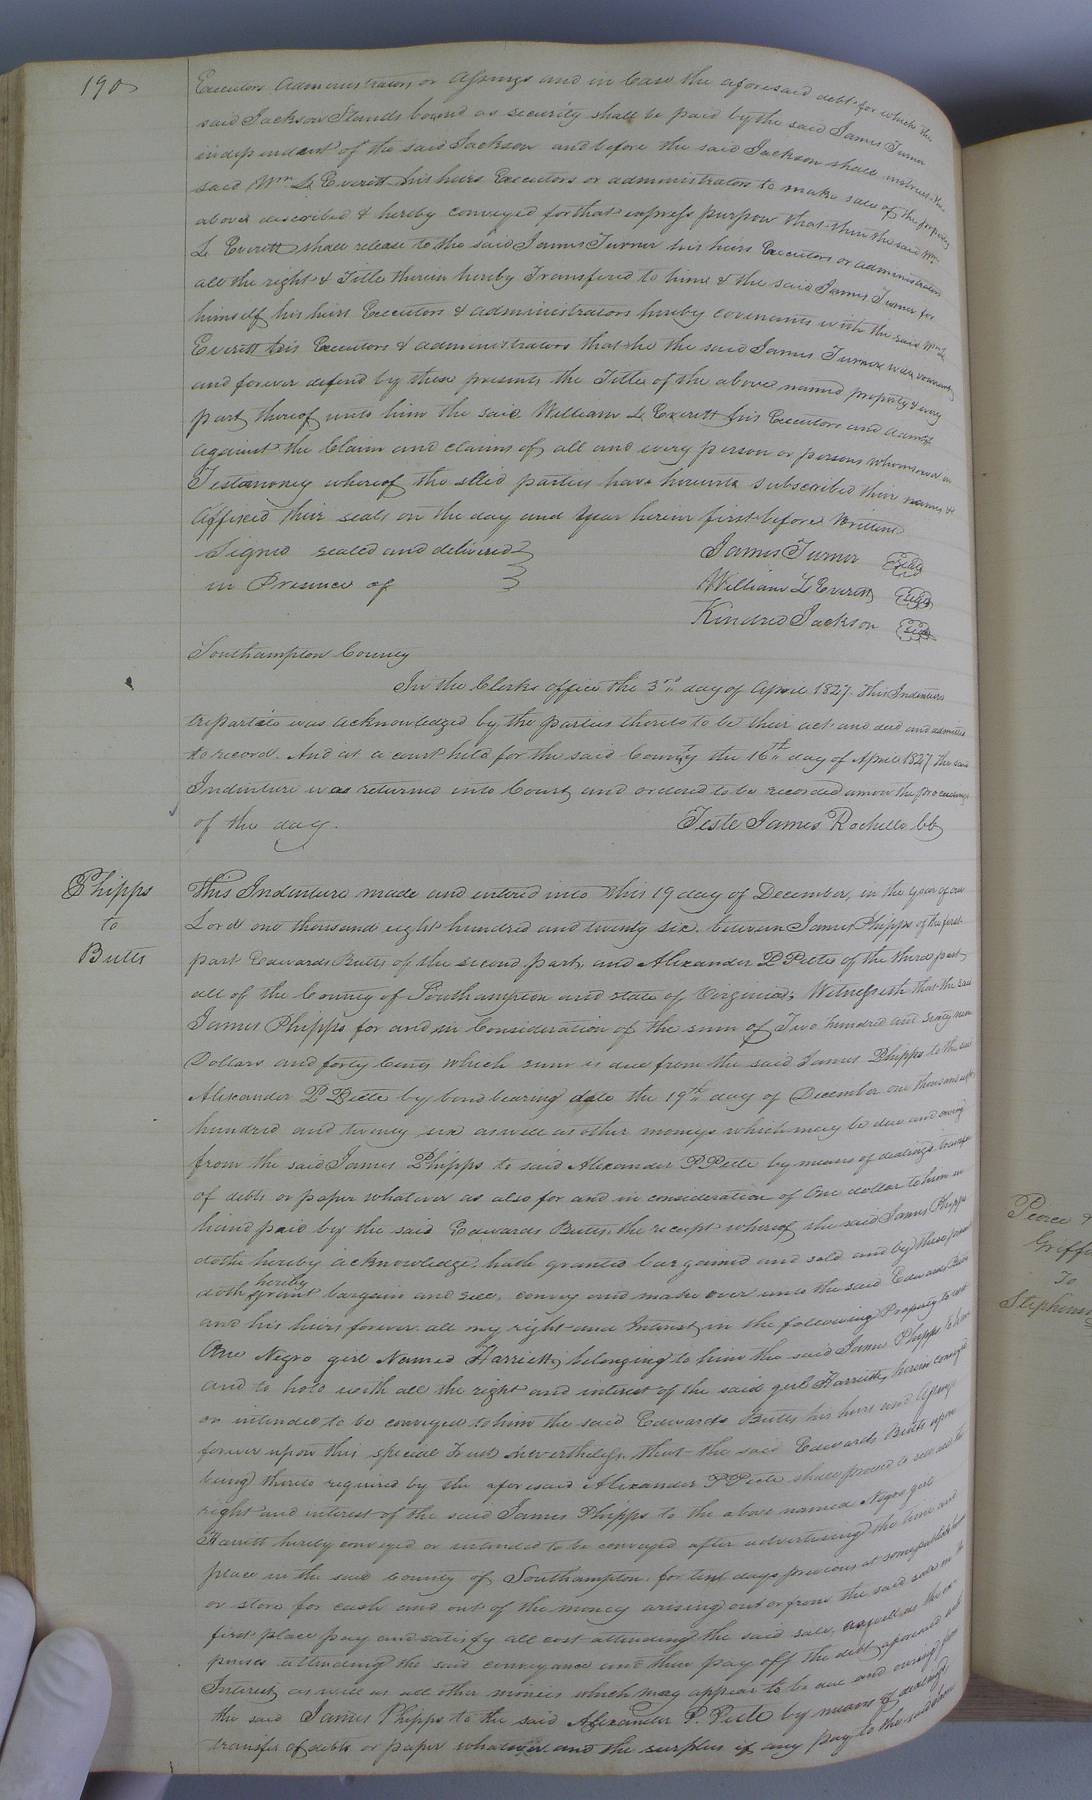 190
Executors Administrators or Assings and in Case the aforesaid debt for which the
said Jackson Stands bound as security shall be paid by the said James Turner
independent of the said Jackson and before the said Jackson shall instruct the
said Wm L Everett his heirs Executors or administrators to make sale of the property
above described & hereby conveyed for that express purpose that then the said Wm
L Everett shall release to the said James Turner his heirs Executors or administrators
all the right & Title therein hereby Transfered to him & the said James Turner for
himself his heirs Executors & administrators hereby covenants with the said Wm L
Everett his Executors & administrators that he the said James Turner will warrant
and forever defend by these presents the Title of the above named property & every
part thereof unto him the said William L Everett his Executors and Admrs
against the Claim and claims of all and every person or persons whomsoever in
Testamoney whereof the said parties have hereunto subscribed their names &
affixed their seals on the day and Year herein first before Written
Signed sealed and delivered
in Presence of
James Turner Seal
William L Everett Seal
Kindred Jackson Seal
Southampton County
In the Clerks office the 3rd day of April 1827. This Indenture
tripartite was acknowledged by the parties thereto to be their act and deed and admitted
to record. And at a court held for the said County the 16th day of April 1827 The said
Indenture was returned into Court and ordered to be recorded among the proceedings
of the day.
Teste James Rochelle CC
Phipps
to
Butts
This Indenture made and entered into this 19 day of December, in the year of our
Lord one thousand eight hundred and twenty six. between James Phipps of the first
part Edwards Butts of the second part, and Alexander P Peete of the third part
all of the County of Southampton and state of Virginia; Witnesseth that the said
James Phipps for and in Consideration of the sum of Two hundred and seventy
Dollars and forty Cents which sum is due from the said James Phipps to the said
Alexander P Peete by bond bearing date the 19th day of December one thousand eight
hundred and twenty six as well as other moneys which may be due and owing
from the said James Phipps to said Alexander P Peete by means of dealings transfer
of debts or paper whatever as also for and in consideration of One dollar to him in
hand paid by the said Edwards Butts, the receipt whereof the said James Phipps
doth hereby acknowledge. hath granted bargained and sold and by these presents
doth hereby grant bargain and sell, convey and make over unto the said Edwards Butts
and his heirs forever all my right and Interest in the following Property to wit
One Negro girl Named Harriett, belonging to him the said James Phipps to have
and to hold with all the right and interest of the said girl Harriett, herein conveyed
or intended to be conveyed to him the said Edwards Butts his heirs and Assings
forever upon this special Trust Nevertheless, that the said Edwards Butts upon
being thereto required by the aforesaid Alexander P Peete shall proceed to sell all the
right and interest of the said James Phipps to the above named Negro girl
Harriett hereby conveyed or intended to be conveyed after advertising the time and
place in the said County of Southampton for ten days previous at some public house
or store for cash and out of the money arising out or from the said sale in the
first place pay and satisfy all cost attending the said sale, as well as the ex
pences attending the said conveyance and then pay off the debt aforesaid with
Interest, as well as all other monies which may appear to be due and owing from
the said James Phipps to the said Alexander P. Peete by means of dealings
transfer of debts or paper whatever and the surplus if any pay to the said James
Peirce &
To